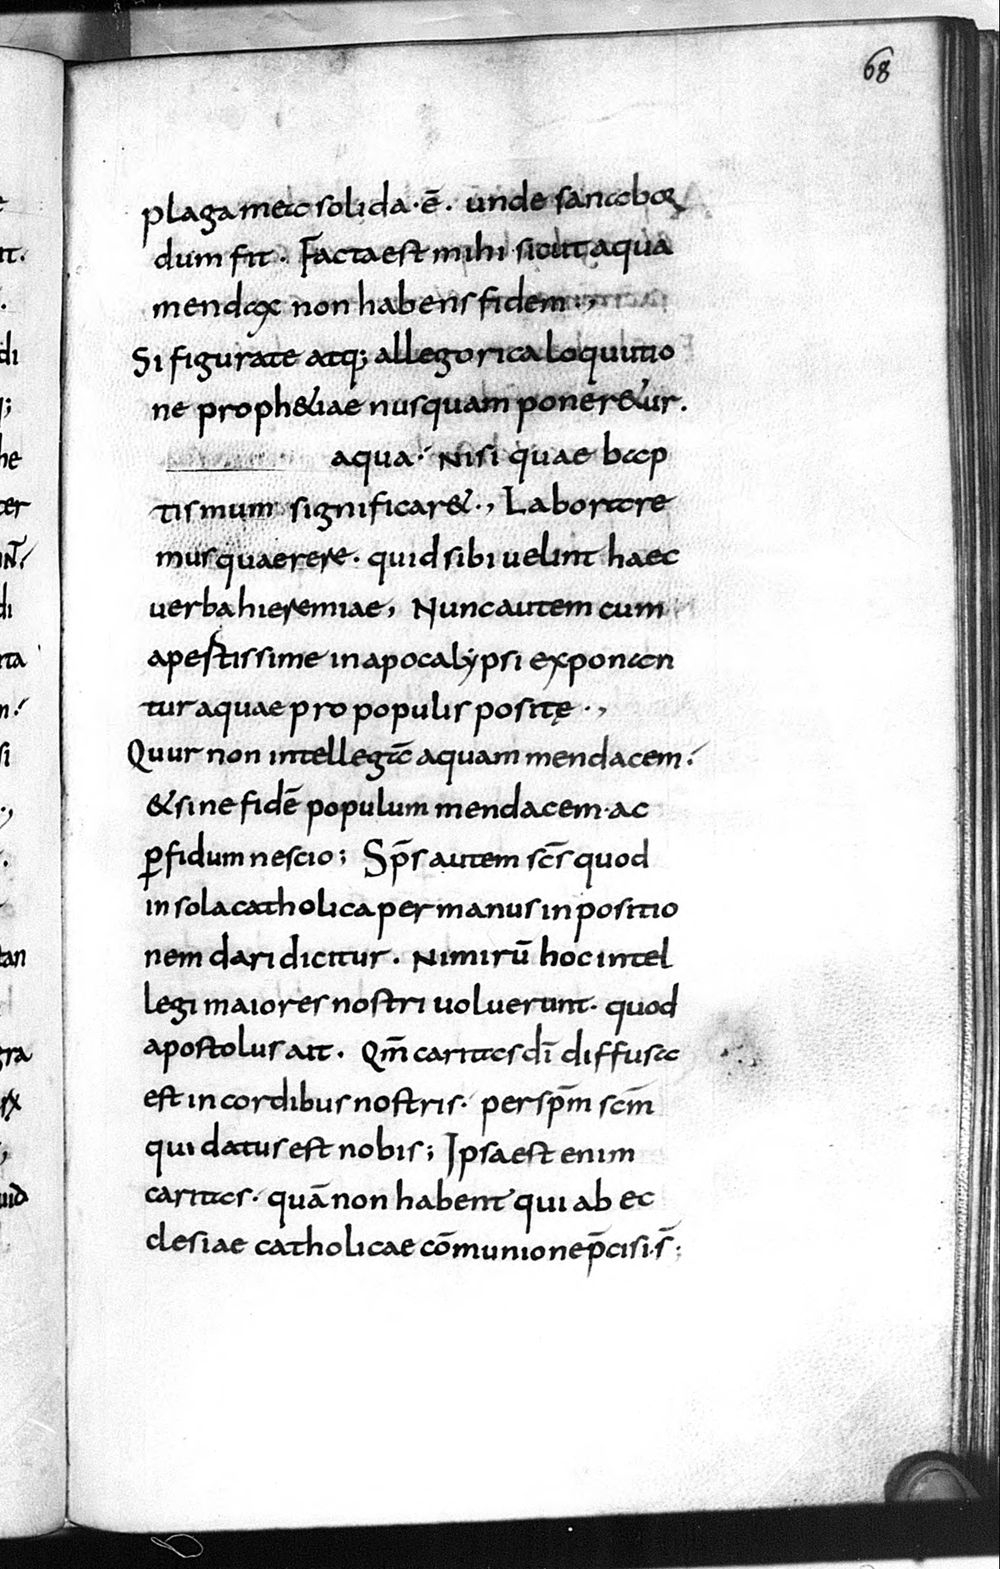 68
plaga mea solida · ē · unde sanabor
dum fit · Facta est mihi sicut aqua
mendax non habens fidem ·,
Si figurate atq; allegorica loquutio
ne proph&iae nusquam poner&ur .
aqua · Nisi quae bap
tismum significar& ·, Labora re
mus quaerere · quid sibi uelint haec
uerba hieremiae , Nunc autem cum
apestissime in apocalẏpsi exponan
tur aquae pro populis positę ·,
Quur non intellegā aquam mendacem ·
& sine fidē populum mendacem · ac
ꝑfidum nescio ; Sp̄s autem sc̄s quod
in sola catholica per manus inpositio
nem dari dicitur . Nimirū hoc intel
legi maiores nostri uoluerunt · quod
apostolus ait . Qm̄ caritas dī diffusa
est in cordibus nostris · per sp̄m sc̄m
qui datus est nobis ; Ipsa est enim
caritas · quā non habent qui ab ec
clesiae catholicae cōmunione p̄cisi s̄ ;